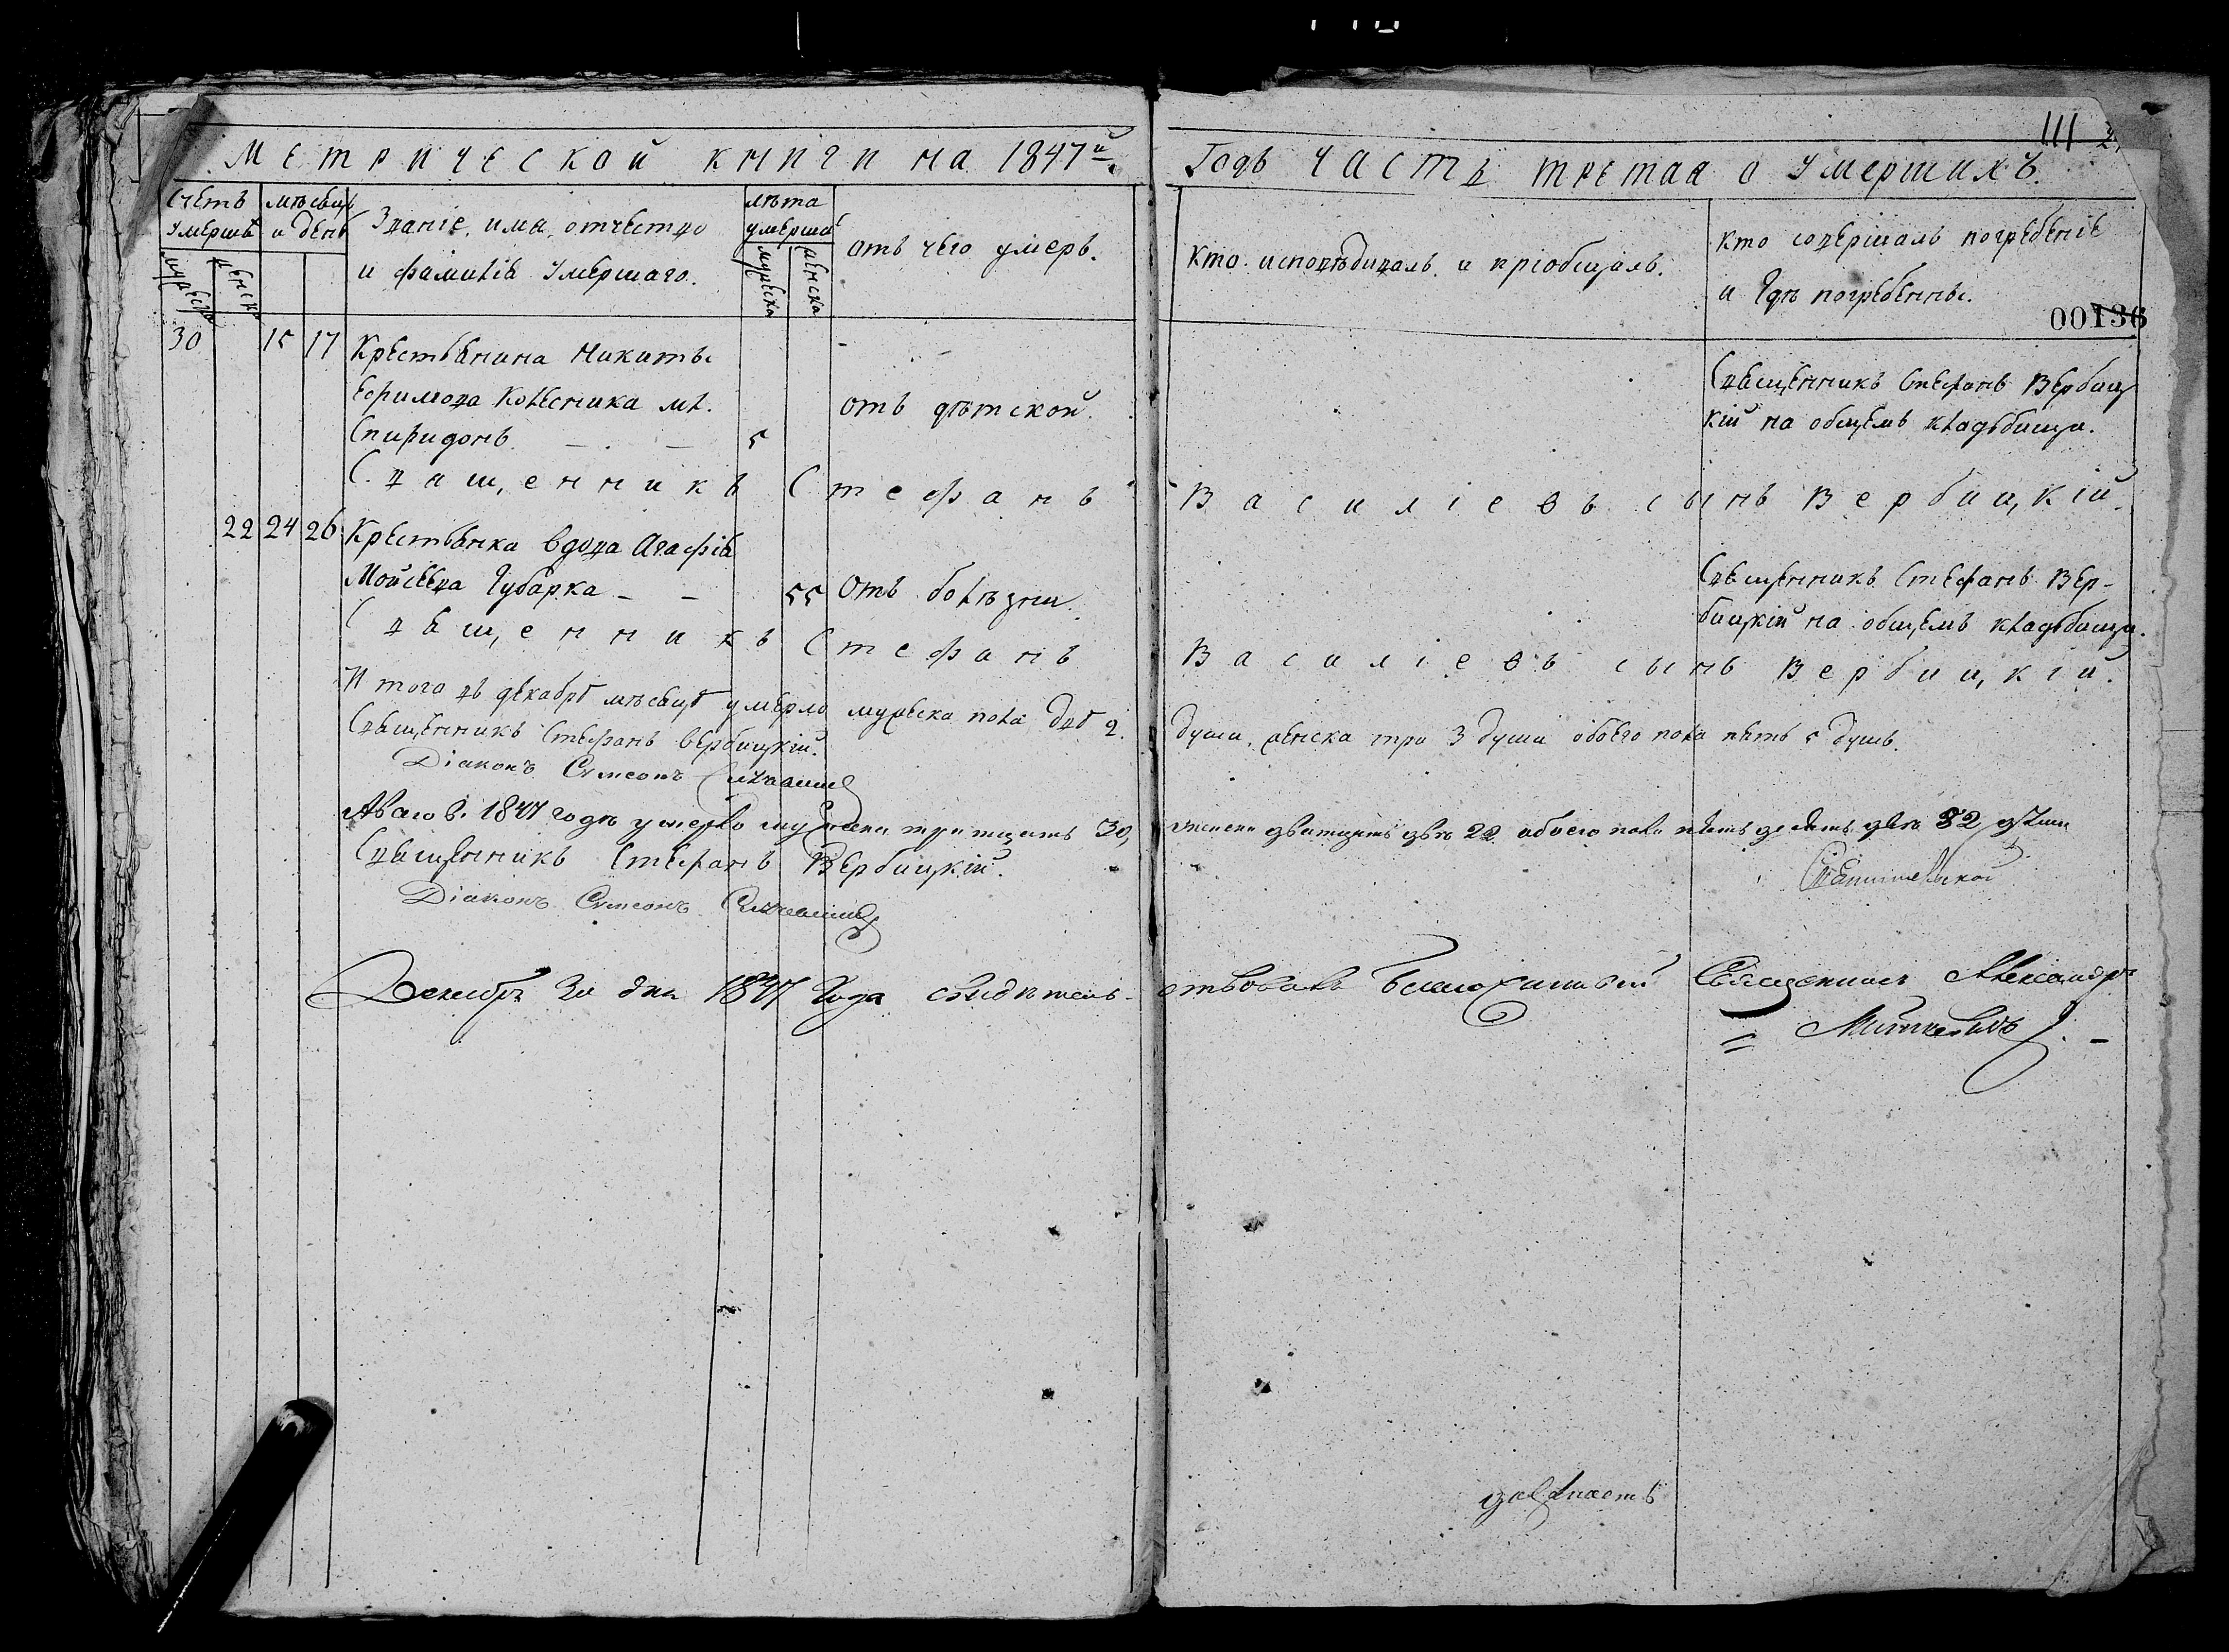 Метрической книги на 1847й
Годъ часть третая о умершихъ.
111
Счетъ умершихъ
мѣсяцъ и день
Званіе, имя, отчество
и фамилія умершаго.
лѣта умершаго
мужеска
женска
отъ чего умеръ.
Кто исповѣдывалъ и пріобщалъ.
Кто совершалъ погребеніе
и гдѣ погребенны.
00136
30 15 17 Крестьянина Никиты
Ефимова Колесника мл.
Спиридонъ 5
отъ дѣтской.
Священникъ Стефанъ Вербиц
кій на общемъ кладбищи.
Священникъ Стефанъ Василіевъ сынъ Вербицкій.
22 24 26 Крестьянка вдова Агафія
Мойсѣева Губарка 55 отъ болѣзни.
Священникъ Стефанъ Вер-
бицкій на общемъ кладбищи.
Священникъ Стефанъ Василіевъ сынъ Вербицкій.
Итого въ декабрѣ мѣсяцѣ умерло мужеска пола двѣ 2 души, женска три 3 души обоего пола пять 5 душъ.
Священникъ Стефанъ Вербицкій.
Діаконъ Симеонъ
А всего въ 1847 годѣ умерло мужеска тритцать 30, женска дватцать двѣ 22 обоего пола пятьдесятъ двѣ 52 души
Священникъ Стефанъ Вербицкій.
Діаконъ Симеонъ
Декабря 30 дня 1847 Года свидѣтель-
ствовалъ Благочинный Священникъ Александръ
Миткевичъ